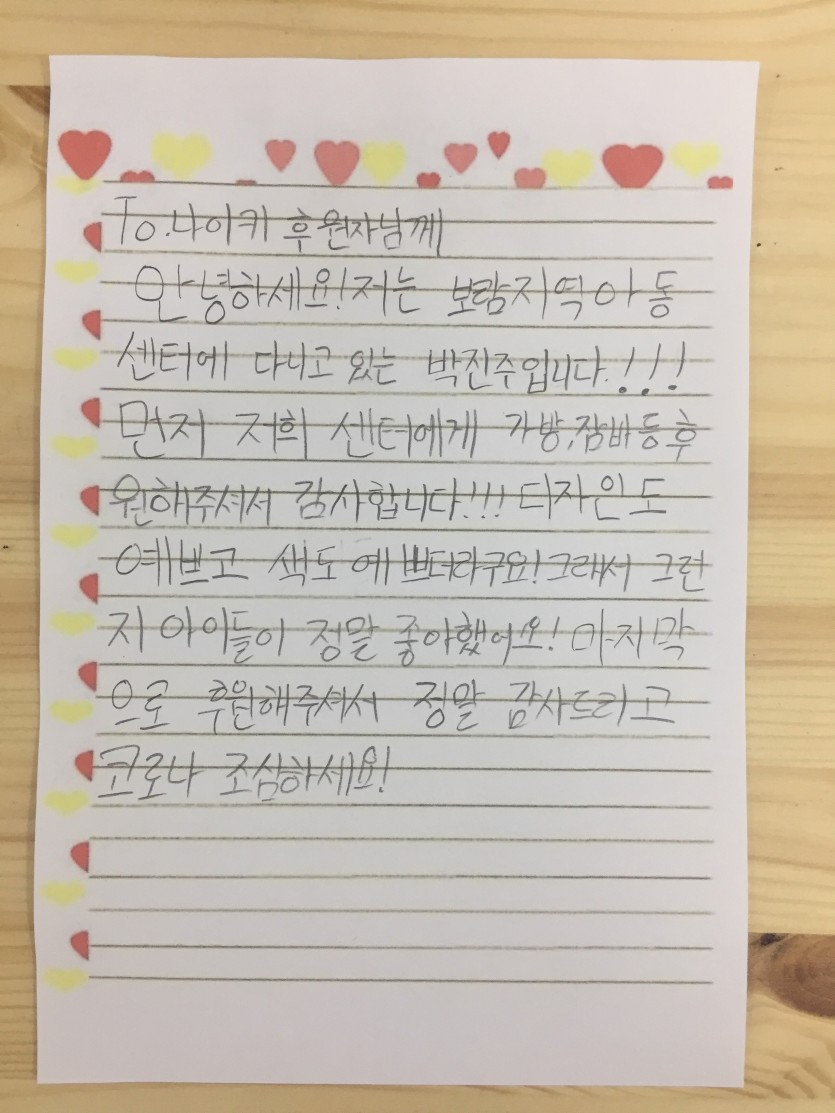 To.나이키 후원자님께
안녕하세요!저는 보람지역아동
센터에 다니고 있는 박진주입니다.!!!
먼저 저희 센터에게 가방,잠바등후
원해주셔서 감사합니다!!! 디자인도
예쁘고 색도 예쁘더라구요!그래서 그런
지 아이들이 정말 좋아했어요! 마지막
으로 후원해주셔서 정말 감사드리고
코로나 조심하세요!